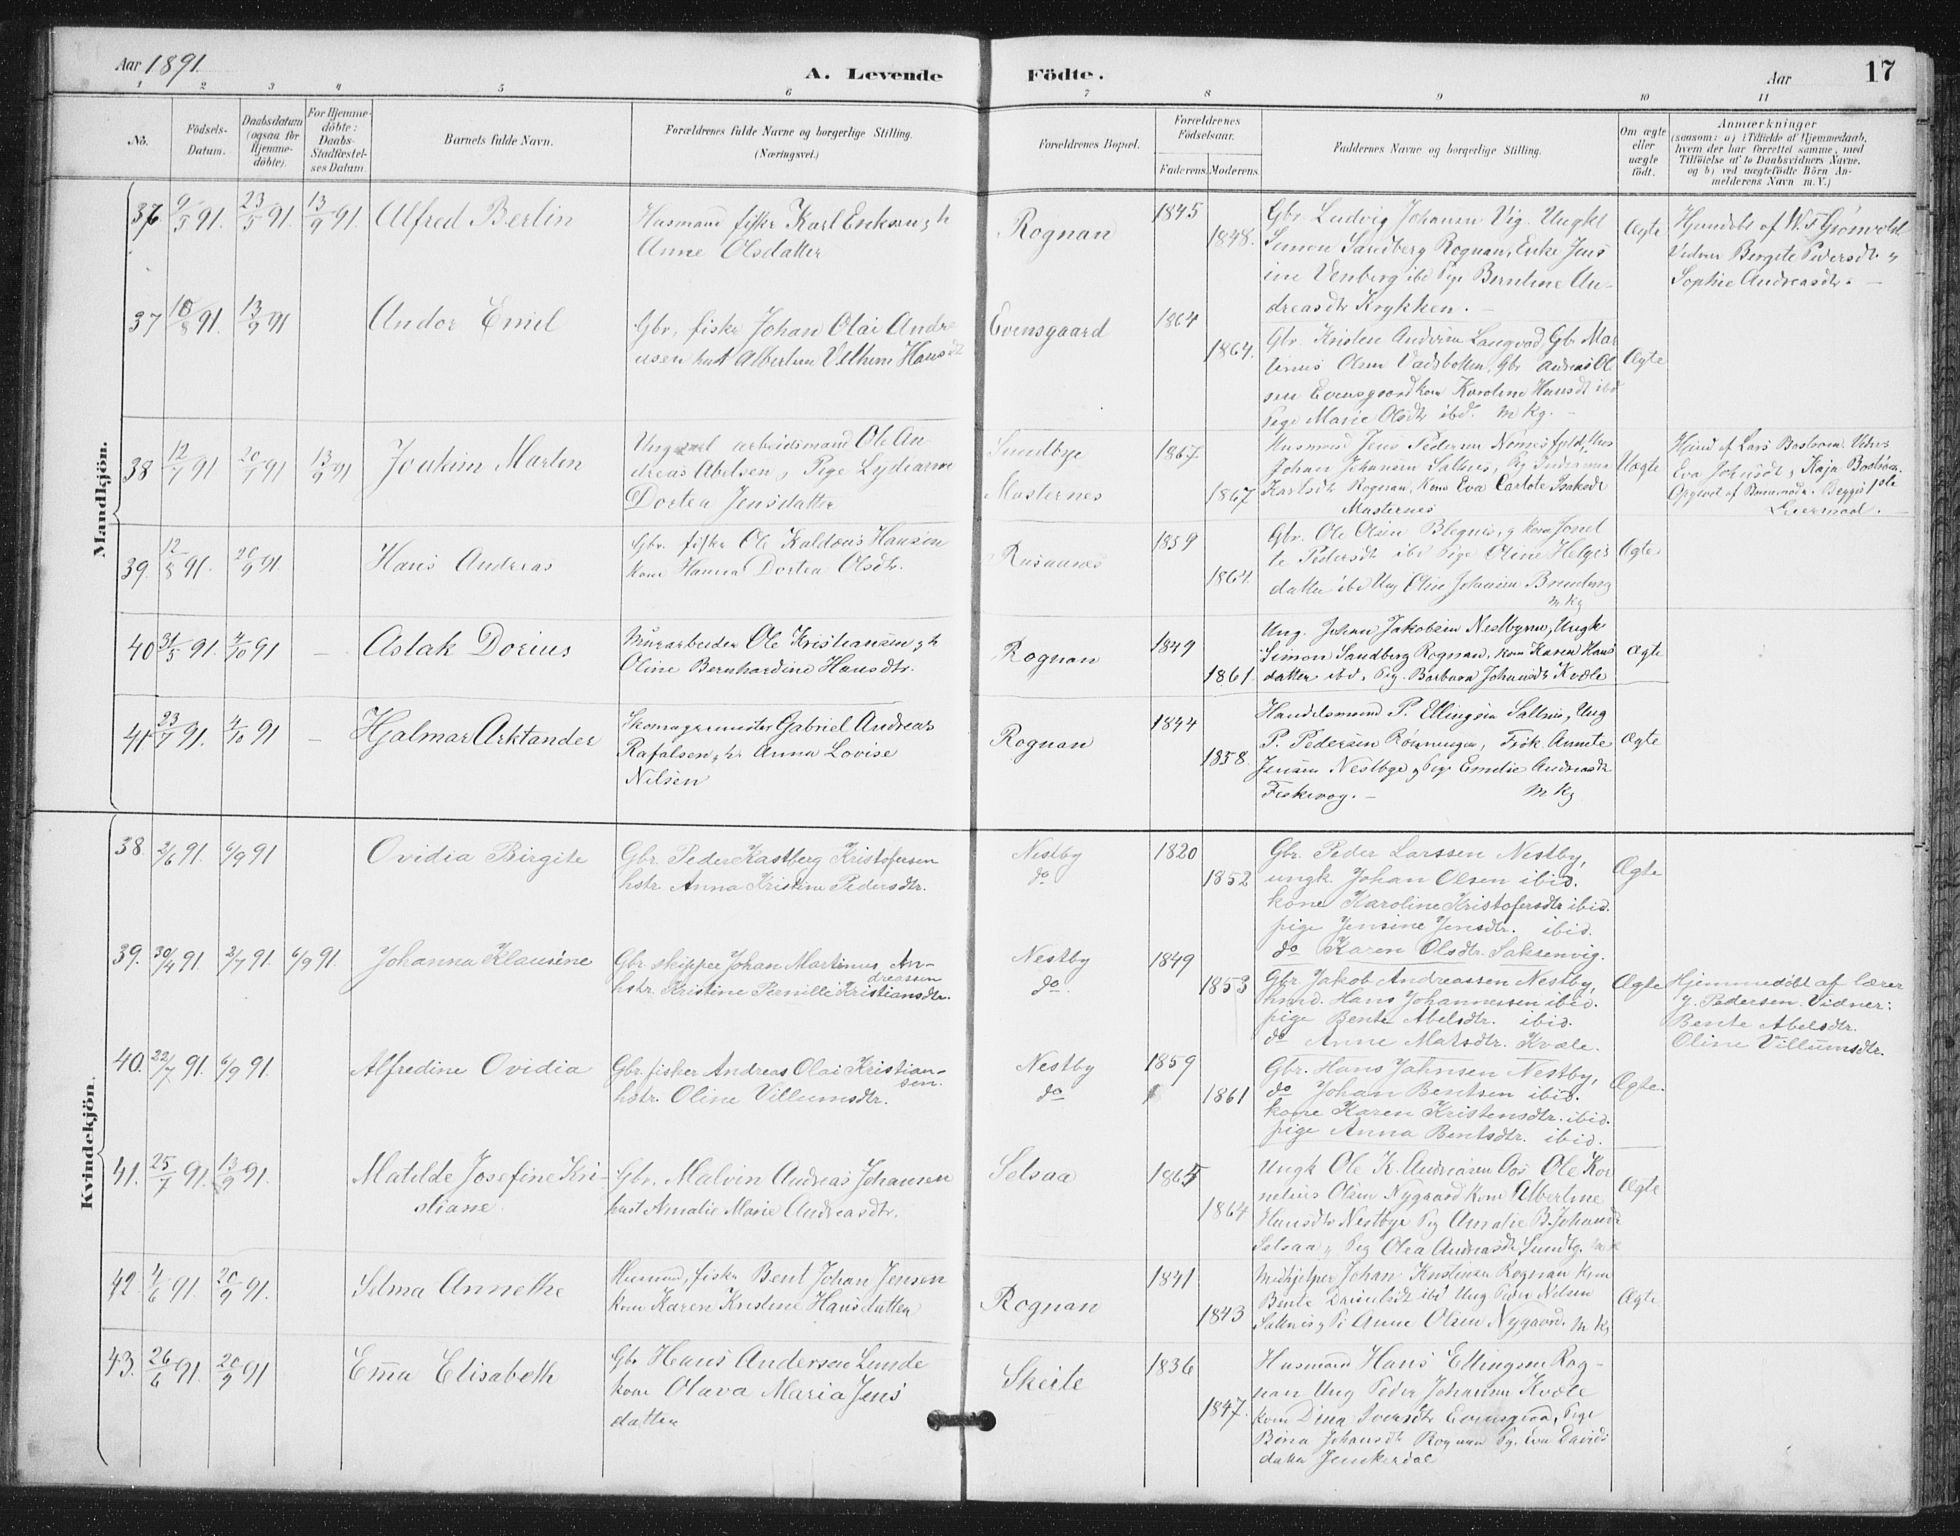 Aar 1891.
A. Levende Födte.
Aar
17
1 2 3 4 5 6 7 8 9 10 11
No.
Födsels-Datum.
Daabsdatum (ogsaa for Hjemmedöbte).
For Hjemmedöbte: Daabs-Stadfæstelses Datum.
Barnets fulde Navn.
Forældrenes fulde Navne og borgerlige Stilling. (Næringsvei.)
Forældrenes Bopæl.
Forældrenes Födselsaar.
Faderens. Moderens.
Faddernes Navne og borgerlige Stilling.
Om ægte eller uægte födt.
Anmærkninger
(saasom: a) i Tilfælde af Hjemmedaab,
hvem der har forrettet samme, med
Tilföielse af to Daabsvidners Navne,
og b) ved uægtefödte Börn Anmelderens Navn m. V.)
Mandkjön.
36 9/5 91. 23/5 91. 13/9 91. Alfred Berlin
Husmand fisker Karl Eriksen, h
Anne Olsdatter
Rognan
1845
1848.
Gbr. Ludvig Johansen Vig. Ungkl
Simon Sandberg Rognan, Enke Jens
ine Venberg ibd Pige Berntine An-
dreasdtr Krykken. -
Ægte
Hjemdøbt af W. F Grönvold
Vidner Bergite Pedersdtr
Sophie Andreasdtr. -
37 18/8 91 13/9 91 Andor Emil
Gbr, fisker Johan Olai Andre
asen hust Albertine Vilhelm Hansdt
Evensgaard
1864
1864.
Gbr. Kristen Andersen Langvad, Gb Mar
tinius Olsen Vadsbotten, Gbr Andreas Ol
sen Evensgaard kone Karoline Hansdt ibd
Pige Marie Olsdtr ibd. m kg. -
Ægte
38 12/7 91 20/7 91 13/9 91 Joakim Martin
Ungkarl arbeidsmand Ole An
dreas Abelsen, Pige Lydianna
Dortea Jensdatter
Sundbye
Masternes
1867
1867
Husmand Jens Pedersen
Johan Johansen Saltnes, Pg
Karlsdtr Rognan, kone Eva Carlote Isaksdt
Masternes
Uægte
Hjemd af Lars Bostrøm. Vidner
Eva Johnsdt, Kaja Bostrøm.
Opgivet af Barnemoder. Begges 1ste
Leiermaal. -
39. 12/8 91. 20/9 91. Hans Andreas
Gbr. fisker Ole Kaldøus Hansen
kone Hanna Dortea Olsdtr.
Rusaanes
1859
1864.
Gbr. Ole Olsen, kone
te Pedersdt ibd Pige Oline Helges
datter ibd Ung Elias Johansen
m kg
Ægte
40 31/5 91. 4/10 91 - Aslak Dorius
Murarbeider Ole Kristiansen, h
Oline Bernhardine Hansdtr.
Rognan
1849
1861.
Ung. Johan Jakobsen Nestbynn, Ungk
Simon Sandberg Rognan, kone Karen Hans
datter ibd, Pig. Barbara Johansdt Kvæle
Ægte
41 23/7 91. 4/10 91 - Hjalmar Arktander
Skomagermester Gabriel Andreas
Rafalsen, h. Anna Lovise
Nilsen
Rognan
1844
1858.
Handelsmand P. Ellingsen Saltnes, Ung
P. Pedersen Rönningen, Frök Annete
Jensen Nestbye, Pige Emelie Andreasdt
Fiskvog. - m kg
Ægte
Kvindekjön.
38. 2/6 91. 6/9 91 Ovidia Birgite
Gbr. Peder Kastberg Kristofersen
hstr. Anna Kristine Pedersdtr.
Nestby
do
1820
1852
Gbr. Peder Larssen Nestby,
ungk. Johan Olsen ibid.
kone Karoline Kristofersdtr ibid.
pige Jensine Jensdtr. ibid.
do Karen Olsdtr. Saksenvig.
Ægte
39. 30/4 91. 2/7 91. 6/9 91. Johanna Klausine
Gbr. skipper Johan Martinus An-
dreassen
hstr. Kristine Pernille Kristiansdtr.
Nestby
do.
1849
1853
Gbr. Jakob Andreassen Nestby,
hmd. Hans Johannessen ibid.
pige Bente Abelsdtr. ibid.
do Anne Matsdtr. Kvæle.
Ægte
Hjemmedöbt af lærer
J. Pedersen. Vidner:
Bente Abelsdtr.
Oline Villumsdtr.
40. 22/7 91 6/9 91. Alfredine Ovidia
Gbr. fisker Andreas Olai Kristian-
sen.
hstr. Oline Villumsdtr.
Nestby
do
1859
1861
Gbr. Hans Jahnsen Nestby,
do Johan Bentsen ibid.
kone Karen Kristensdtr. ibid.
pige Anna Bentsdtr. ibid.
Ægte.
41. 25/7 91. 13/9 91. Matilde Josefine Kri-
stiane.
Gbr. Malvin Andreas Johansen
hust Amalie Marie Andreasdtr.
Selsaa
1865
1864
Ungk Ole K. Andreasen Ole Kor
nelius Olsen Nygaard kone Albertine
Hansdtr Nestbye Pig Amalie B. Johansdt
Selsaa, Pig Olea Andreasdt Sundby. m k
Ægte
42 4/6 91. 20/9 91. Selma Annethe
Husmand, fisker Bent Johan Jensen
kone Karen Kristine Hansdatter
Rognan
1841
1843
Medhjelper Johan Kristiansen Rognan kone
Bente ibd Ung Peder Nilsen
Saltnes, Pi Anne Olsen Nygaard. m kg
Ægte
43. 26/6 91. 20/9 91 Emma Elisabeth
Gbr Hans Andersen Lunde
kone Olava Maria Jens
datter
Skeile
1836
1847.
Husmand Hans Ellingsen Rog-
nan Ung Peder Johansen Kvæle
kone Dina Iversdtr Evensgaard, Pige
Bina Johansdt Rognan Pg. Eva Davids
datter Junkerdal